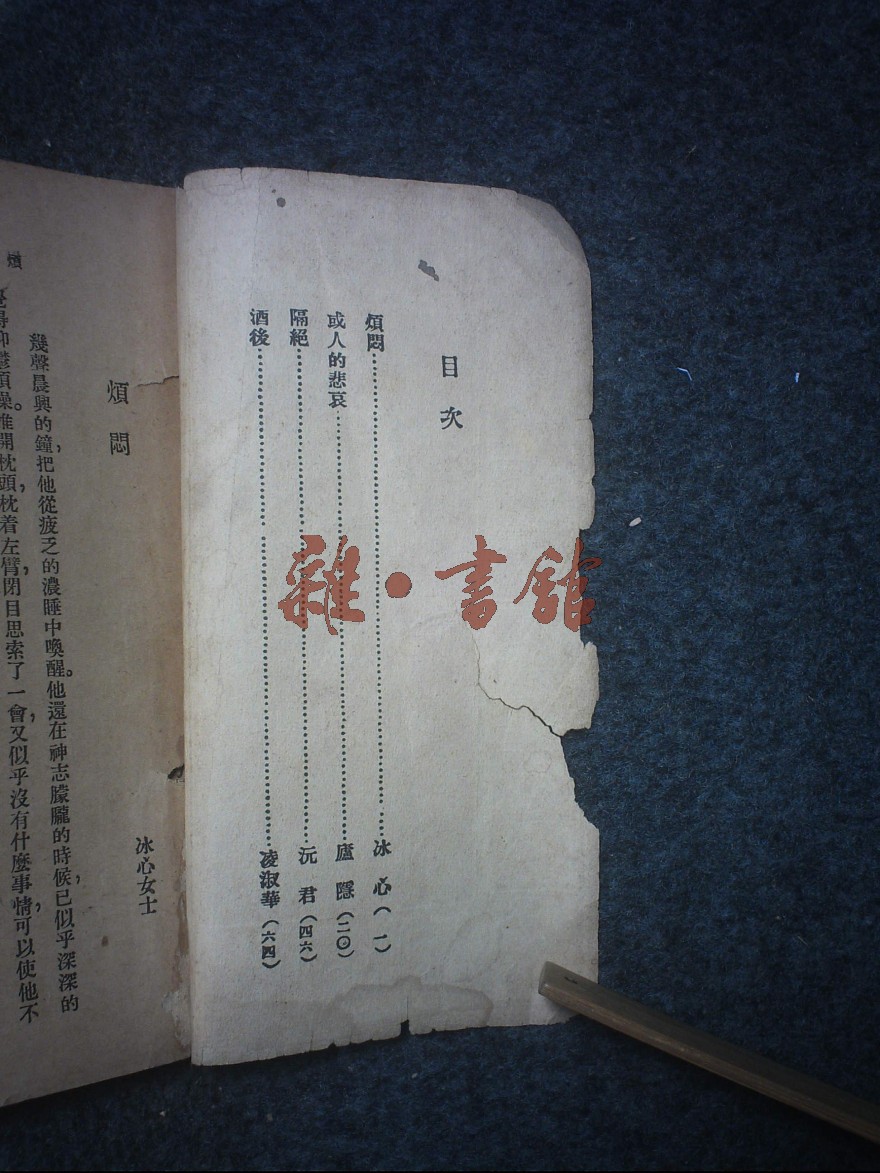 目次
煩悶……冰心(一)
或人的悲哀……廬隱(二〇)
隔絕……沅君(四六)
酒後……凌淑華(六四)
雜·書館
煩悶
冰心女士
幾聲晨興的鐘,把他從疲乏的濃睡中喚醒。他還在神志朦朧的時候,已似乎深深的
覺得抑鬱煩燥。推開枕頭,枕着左臂,閉目思索了一會,又似乎沒有什麼事情,可以使他不
煩